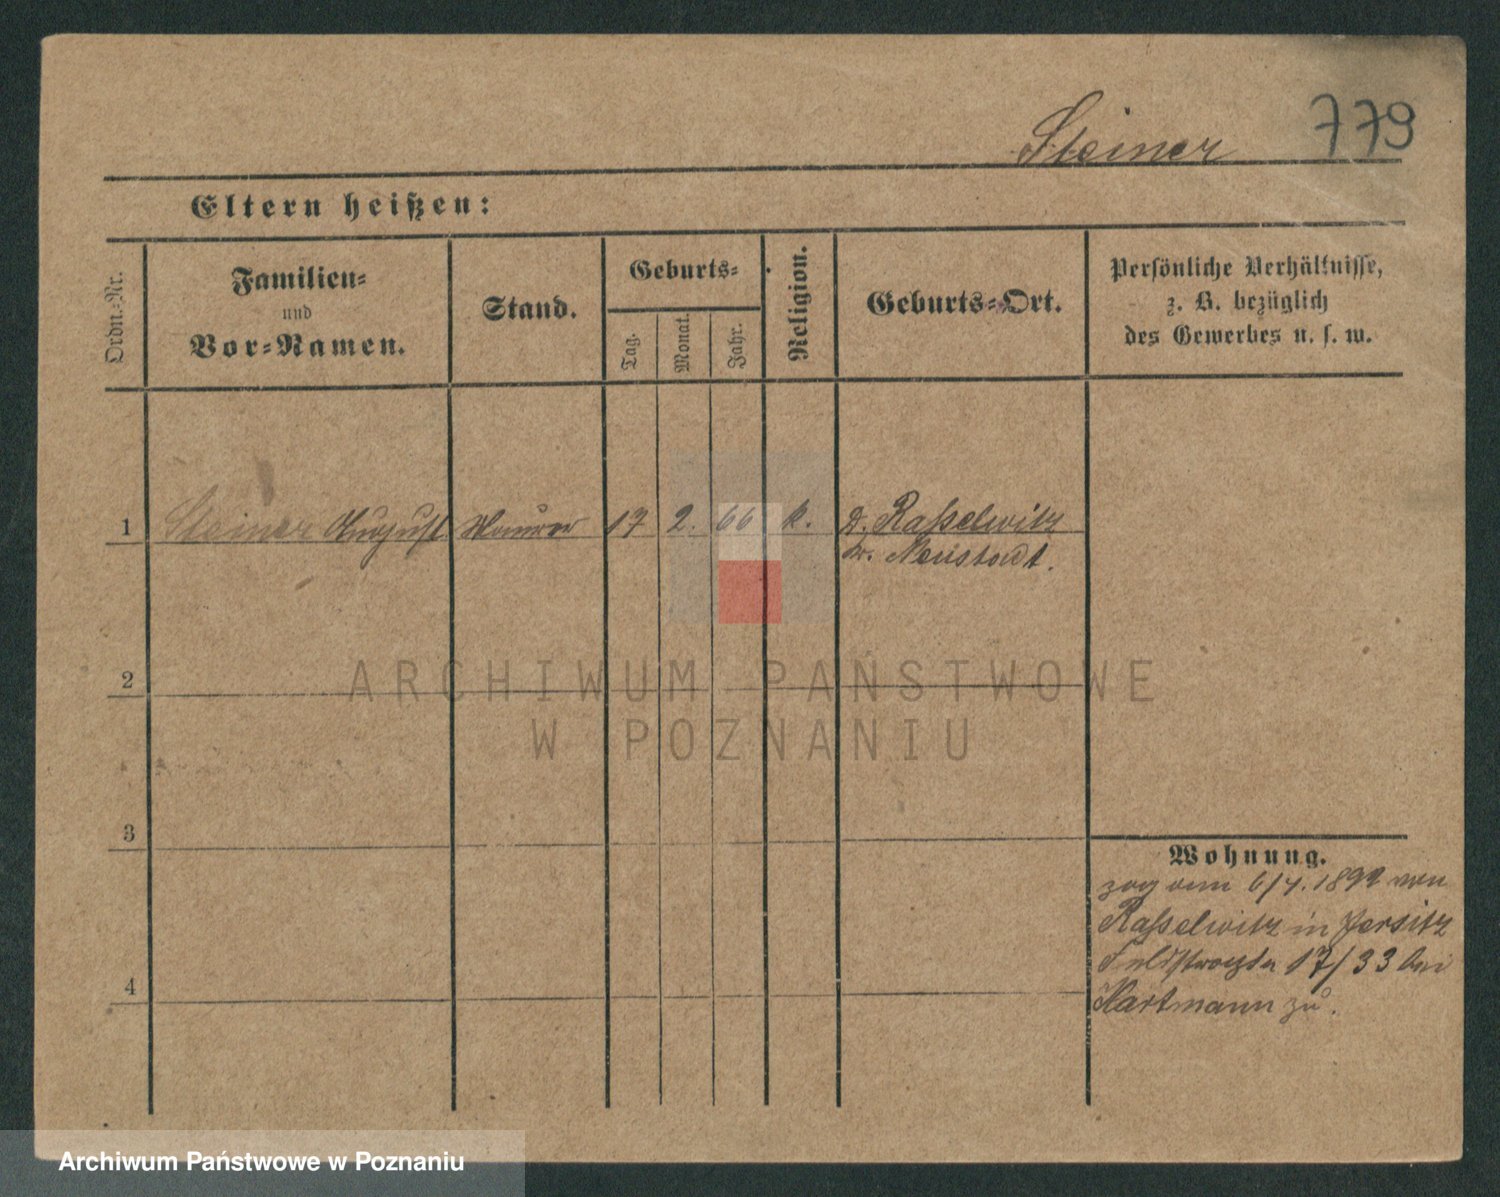 Steiner 779
Eltern heißen:
Ordn.-Nr.
Familien-
und
Vor-Namen.
Stand.
Geburts-
Tag.
Monat.
Jahr.
Religion.
Geburts-Ort.
Persönliche Verhältnisse,
z. B. bezüglich
des Gewerbes u. s. w.
1 Steiner August Maurer 17 2. 66 k. D. Raßelwitz
Neustadt.
2
ARCHIWUM PAŃSTWOWE
W POZNANIU
3
Wohnung.
zog am 6/4. 1892 von
Raßelwitz in Jersitz
17/33 bei
4
Hartmann zu.
Archiwum Państwowe w Poznaniu